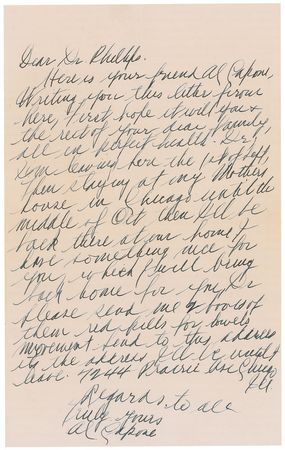 Dear Dr Phelps.
Here is your friend Al Capone,
Writing you this letter from
here, first hope it will you &
the rest of your dear family
all in perfect health. Dr,
I'm leaving here the 1st of Sept,
then staying at my Mothers
house in Chicago until the
middle of Oct then I'll be
back there at our home I
have something nice for
you which I will bring
back home for you, Dr
please send me 2 boxes of
them red pills for bowels
movement send to this address
its the address I'll be until I
leave. 7244 Prairie Ave Chicago
Ill
Regards to all
Yours
Al Capone